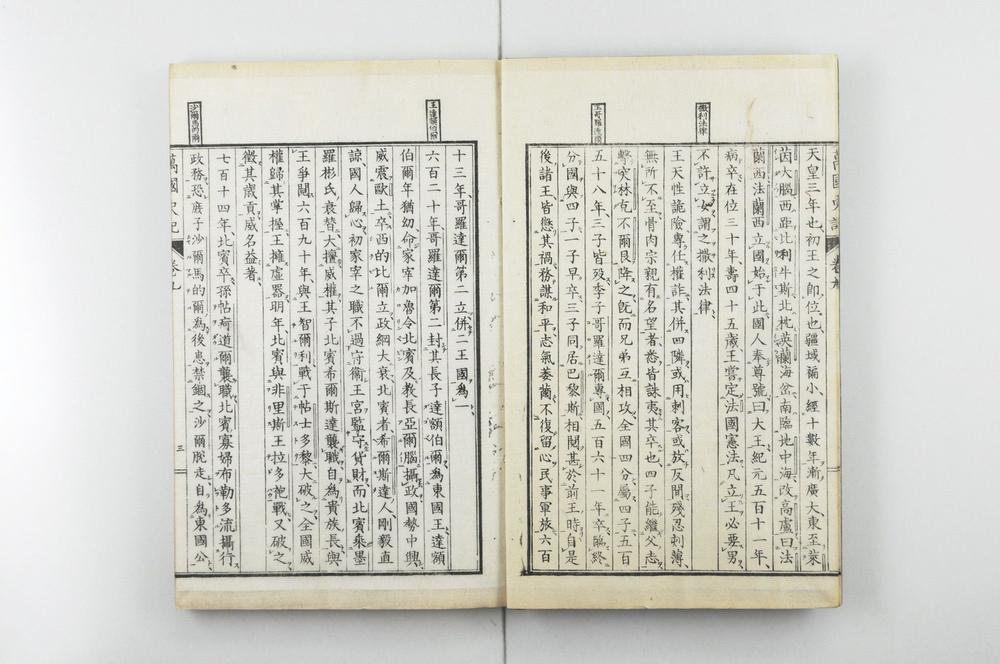 萬國史記 卷九
天皇三年也初王之卽位也疆域褊小經十數年漸廣大東至萊
茵大腦西距比利牛斯北抗英蘭海岔南臨地中海改高盧曰法
蘭西法蘭西立國始于此國人奉尊號曰大王紀元五百十一年
病卒在位三十年壽四十五歲王嘗定法國憲法凡立王必要男
撒利法律
不許立女謂之撒利法律
王天性詭險專任權詐其併四隣或用刺客或放反間殘忍刺薄
無所不至骨肉宗親有名望者悉皆誅夷其卒也四子能繼父志
擊突林厄不爾艮降之旣而兄弟互相攻全國四分屬四子五百
五十八年三子皆歿季子哥羅達爾專國五百六十一年卒臨終
分國與四子一子早卒三子同居巴黎斯相鬩甚於前王時自是
後諸王皆懲其禍務謀和平志氣萎薾不復留心民事軍旅六百
王達額伯爾
十三年哥羅達爾第二立併二王國爲一
六百二十年哥羅達爾第二封其長子達額伯爾爲東國王達額
伯爾年猶幼命家宰加魯令北賓及教長亞爾腦攝政國勢中興
威震歐土卒西的比爾立政綱大衰北賓者希爾斯達人剛毅直
諒國人歸心初家宰之職不過守衞王宮監守貨財而北賓乘墨
羅彬氏衰替大擅威權其子北賓希爾斯達襲職自爲貴族長與
王爭鬩六百九十年與王智爾利戰于帖士多黎大破之全國威
權歸其掌握王擁虛器明年北賓與非里斯王拉多苞戰又破之
徵其歲貢威名益著
七百十四年北賓卒孫帖疴道爾襲職北賓寡婦布勒多流攝行
沙爾馬的爾
政務恐庶子沙爾馬的爾爲後患禁錮之沙爾脫走自爲東國公
萬國史記 卷九
三